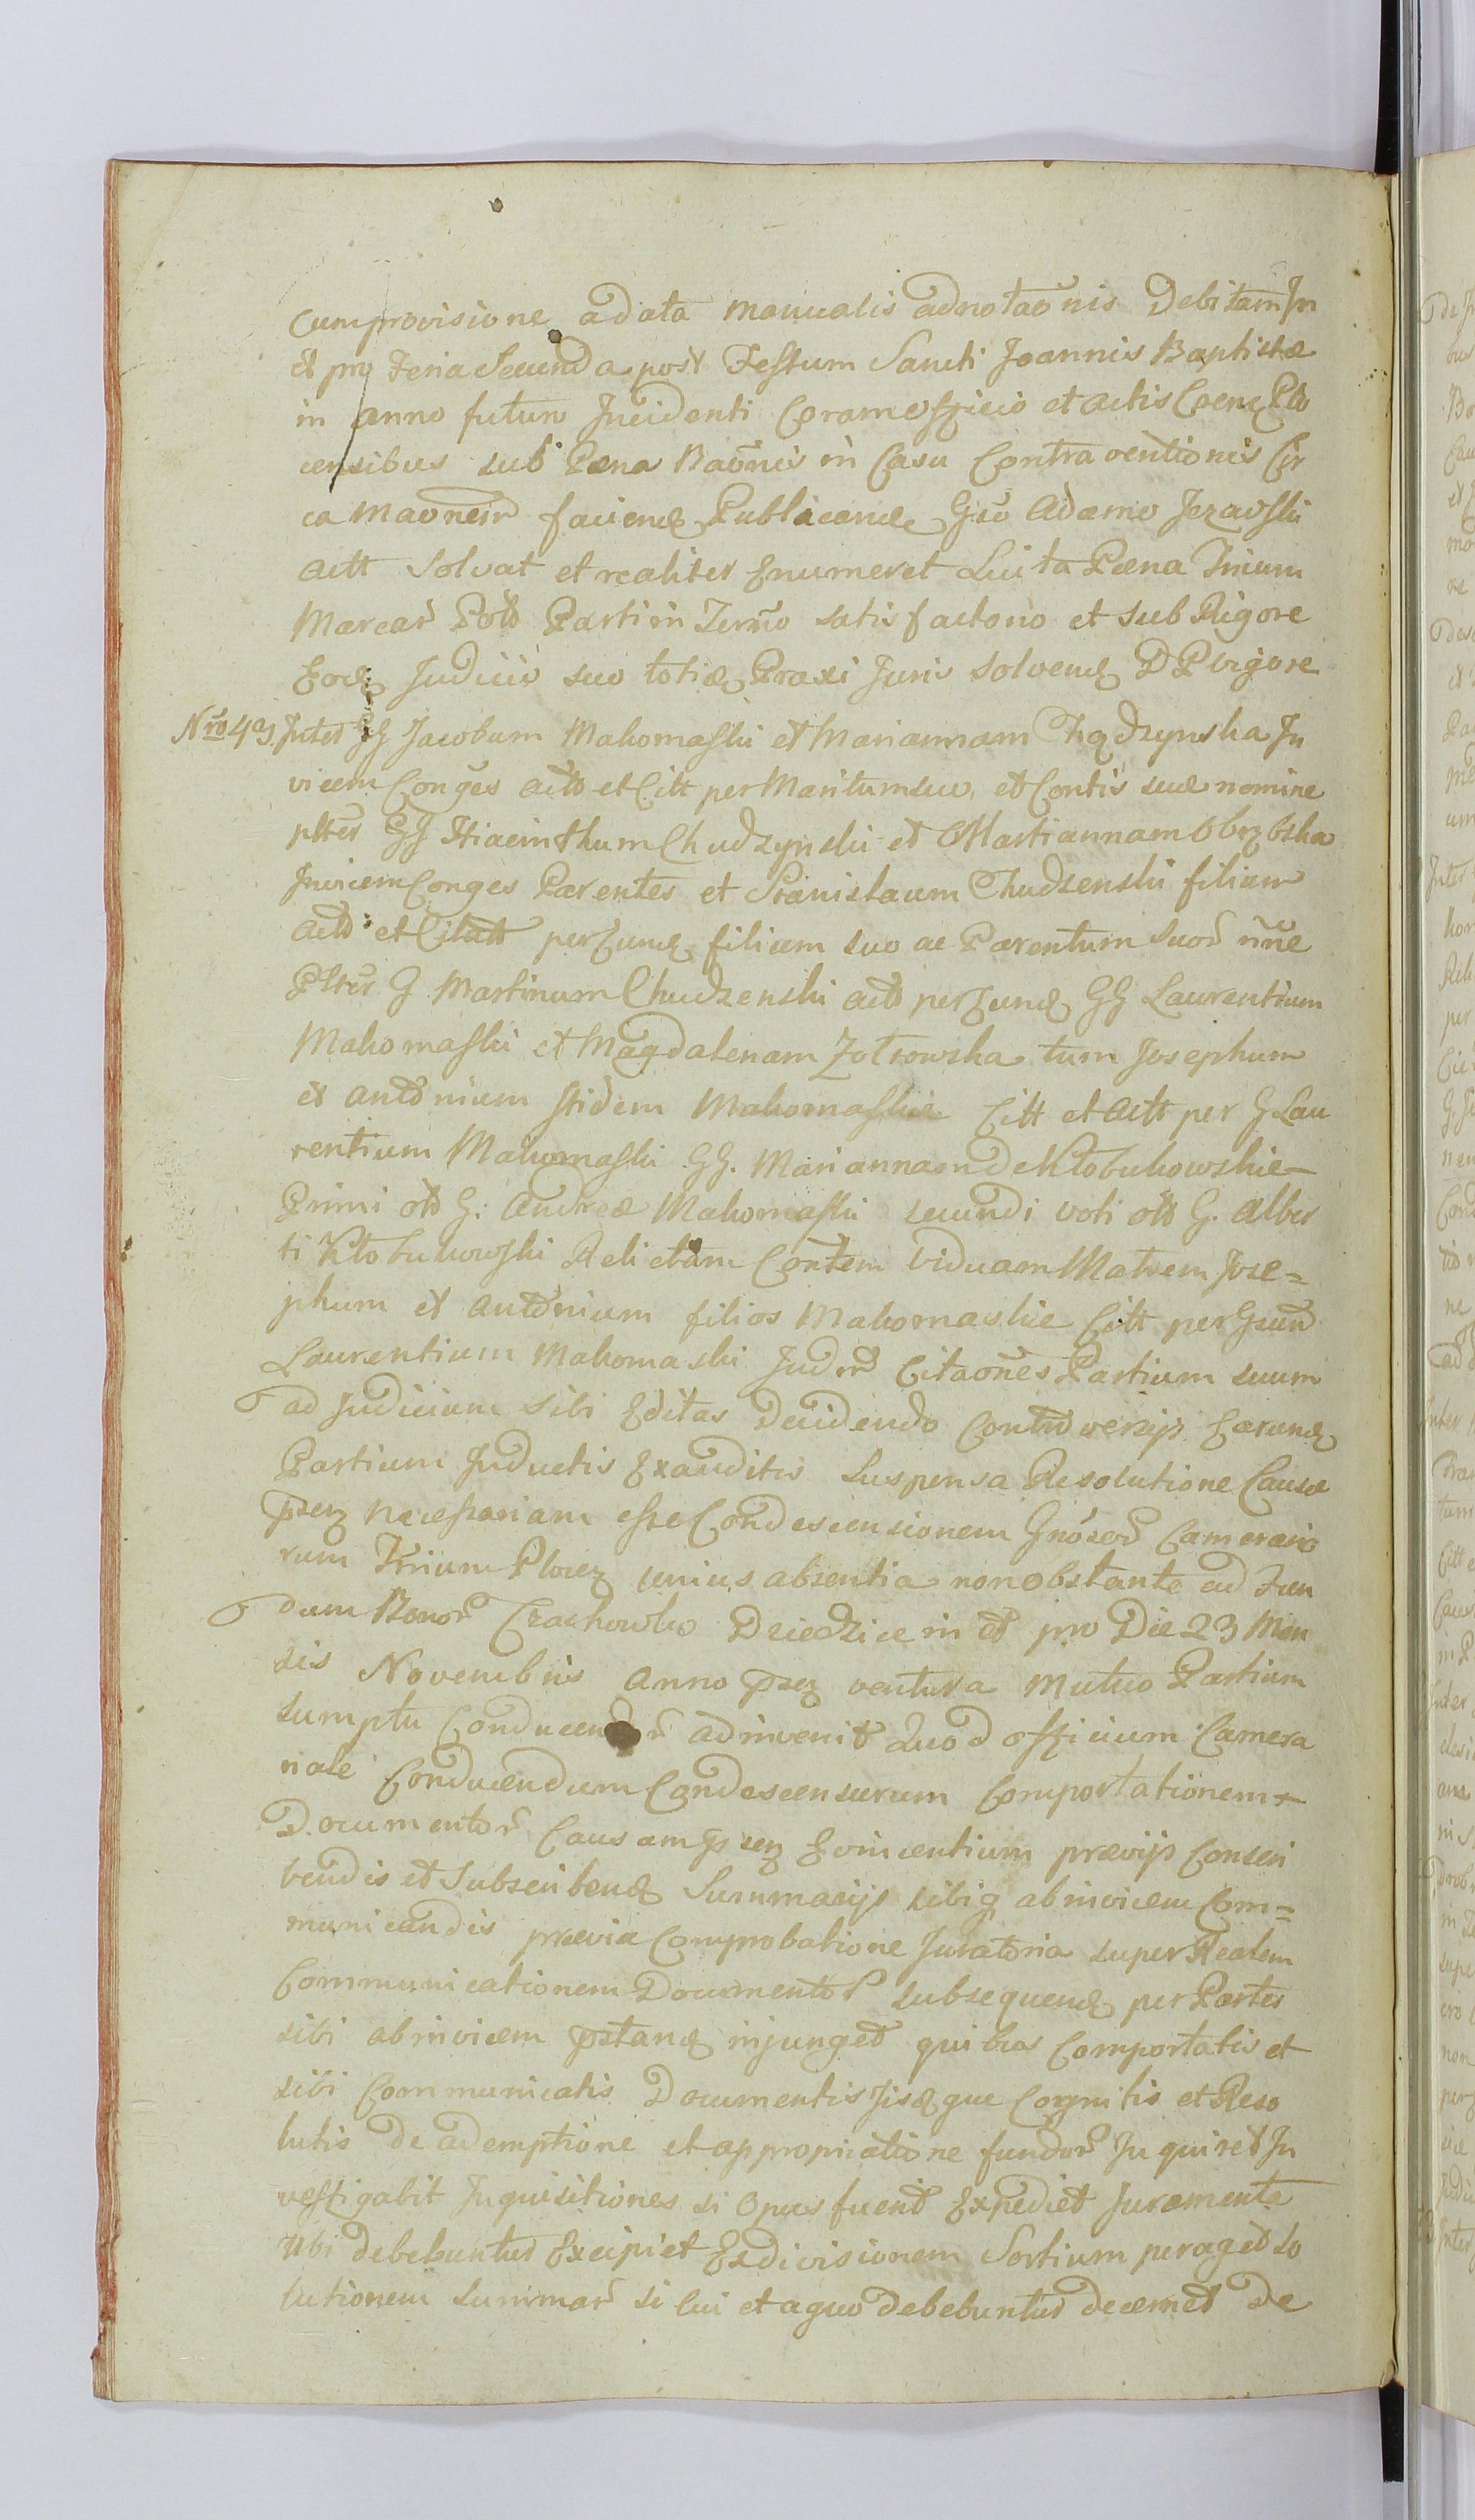 cum provisione a data manualis adnotaōnis Debitam In
et pro Feria Secunda post Festum Sancti Joannis Baptistæ
in anno futuro Incidenti Coram officio et actis Cren Plo
censibus sub Pœna Baōnis in Casu Contraventionis Cir
ca Maōnem faciend Publicand Gso Adamo Jezewski
Actt solvat et realiter Enumeret Luita Pœna Trium
Marcar Pold Parti in Termo satisfactorio et sub Rigore
Eod Judicii suo toties Praxi Juris solvend D P Vigore
Nro 43. Inter GG Jacobum Makomaski et Mariannam Chądzynska In
vicem Conges actt et Citt per Maritum suo et Contis suæ nomine
plter GG Hiacinthum Chudzynski et Martiannam Obrębska
Invicem Conges Parentes et Stanislaum Chudzenski filium
Actt et Citatt per Eund filium suo ac Parentum suor nne
Plter G Martinum Chudzenski actt per Eund GG Laurentium
Makomaski et Magdalenam Zotrowska tum Josephum
et Antonium ftidem Makomaskie Citt et Actt per G Lau
rentium Makomaski GG. Mariannam de Kłobukowskie
Primi olt G. Andreæ Makomaski secundi voti olt G. Alber
ti Kłobukowski Relictam Contem viduam Matrem Jose=
phum et Antonium filios Makomaskie Citt per Gsund
Laurentium Makomaski Judm Citaōnes Partium suum
ad Judicium sibi Editas Decidendo Controversijs Earund
Partium Inductis Exauditis suspensa Resolutione Causæ
pseñ necessariam esse Condescensionem Gnoser Camerario
rum Trium Plocen unius absentia non obstante ad Fun
dum Bonor Czachowko Dziedzice in et pro Die 23 Men
sis Novembris Anno pseñ ventura mutuo Partium
sumptu Conducend adinvenit Quod officium Camera
riale Conducendum Condescensurum Comportationem
Documentor Causam pseñ Evincentium prævijs Conscri
bendis et Subscribend Summarijs sibiq ab invicem Com=
municandis prævia Comprobatione Juratoria super Realem
Communicationem Documentor subsequend per Partes
sibi ab invicem pstand injunget quibus Comportatis et
sibi Communicatis Documentis Jisdque Cognitis et Reso
lutis De ademptione et appropriatione fundor Inquiret In
vestigabit Inquisitiones si Opus fuerit Expediet Juramenta
Ubi debebuntur Excipiet Exdivisionem Sortium peraget So
lutionem summar si cui et a quo debebuntur decernet De